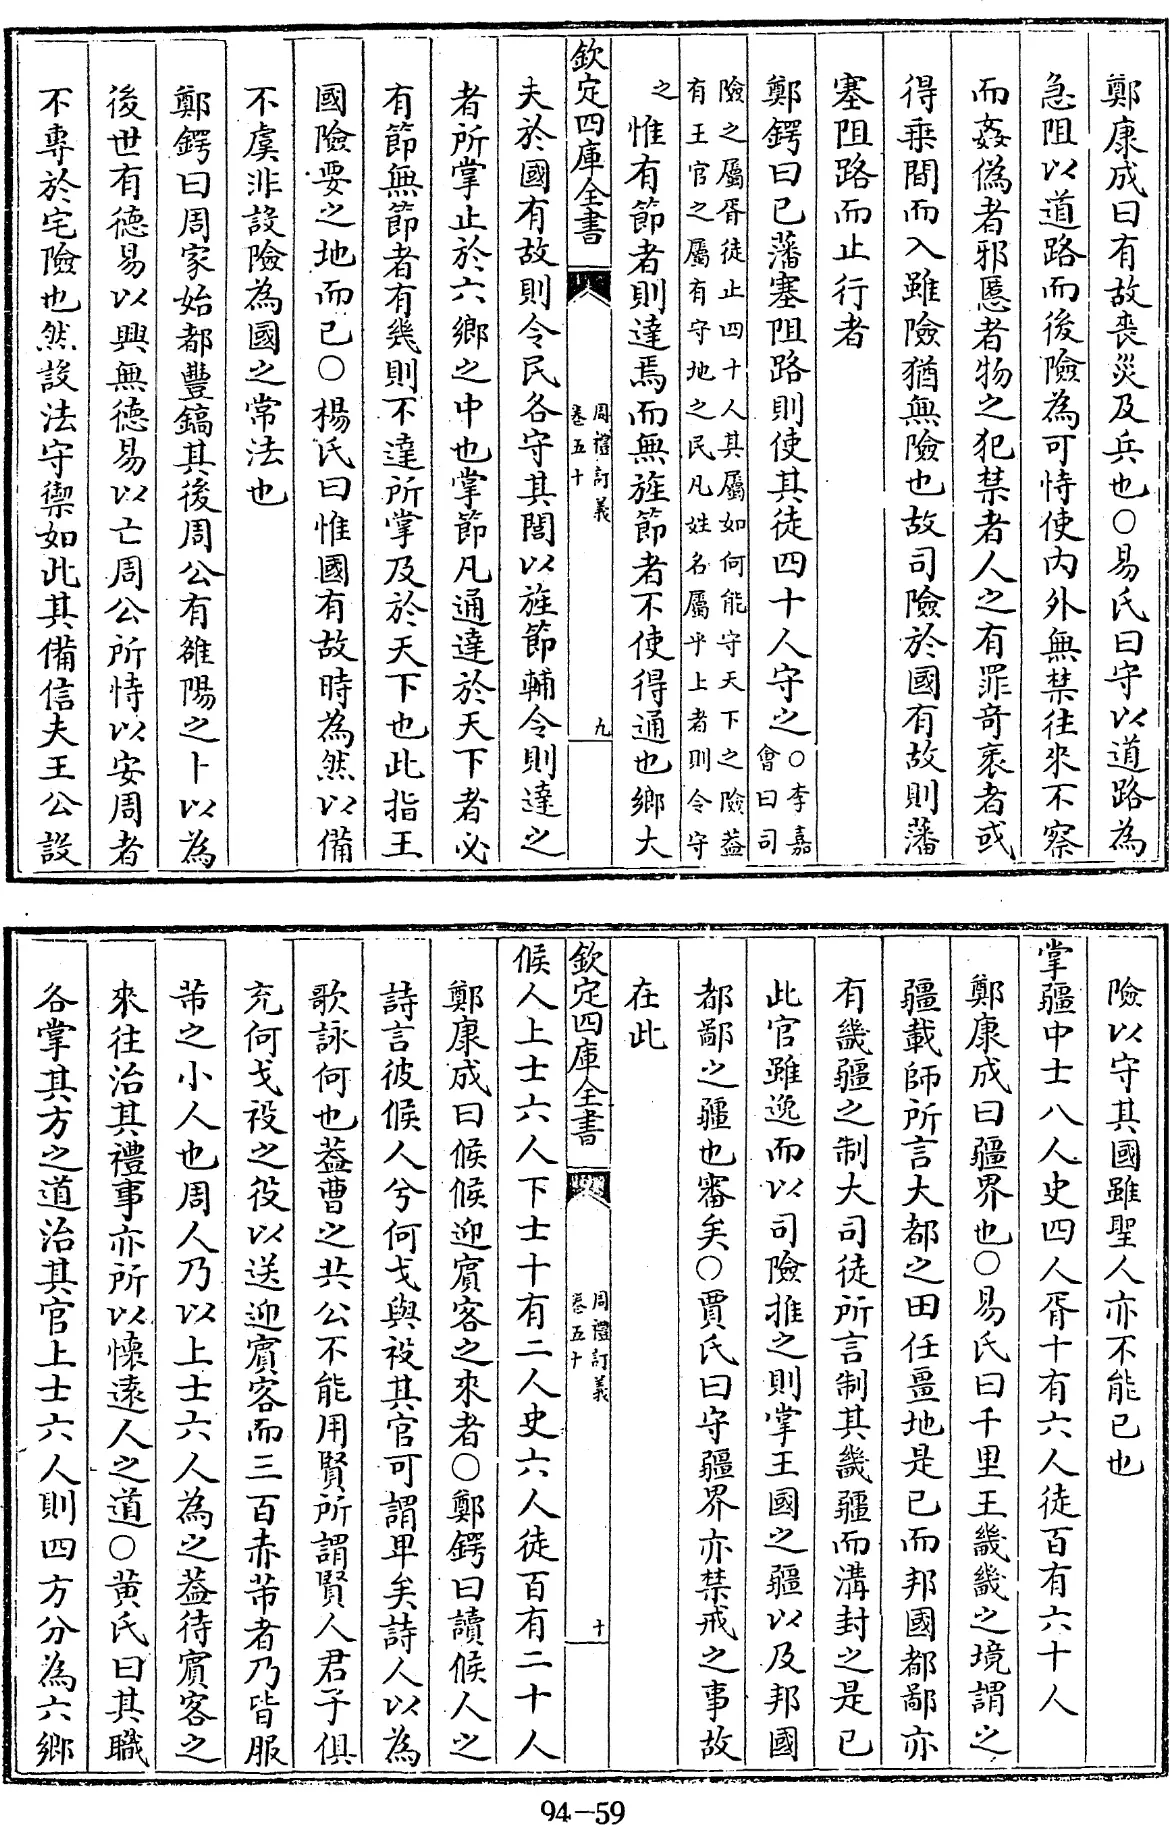 鄭康成曰有故喪災及兵也○易氏曰守以道路為
急阻以道路而後險為可恃使内外無禁往來不察
而姦偽者邪慝者物之犯禁者人之有罪奇衺者或
得乗間而入雖險猶無險也故司險於國有故則藩
塞阻路而止行者
鄭鍔曰已藩塞阻路則使其徒四十人守之○李嘉
會曰司
險之屬胥徒止四十人其屬如何能守天下之險葢
有王官之屬有守地之民凡姓名屬乎上者則令守
之
惟有節者則達焉而無旌節者不使得通也鄉大
欽定四庫全書
周禮訂義
卷五十
九
夫於國有故則令民各守其閭以旌節輔令則達之
者所掌止於六鄉之中也掌節凡通達於天下者必
有節無節者有幾則不達所掌及於天下也此指王
國險要之地而已○楊氏曰惟國有故時為然以備
不虞非設險為國之常法也
鄭鍔曰周家始都豐鎬其後周公有雒陽之卜以為
後世有德易以興無德易以亡周公所恃以安周者
不專於宅險也然設法守禦如此其備信夫王公設
險以守其國雖聖人亦不能已也
掌疆中士八人史四人胥十有六人徒百有六十人
鄭康成曰疆界也○易氏曰千里王畿畿之境謂之
疆載師所言大都之田任畺地是已而邦國都鄙亦
有畿疆之制大司徒所言制其畿疆而溝封之是已
此官雖逸而以司險推之則掌王國之疆以及邦國
都鄙之疆也審矣○賈氏曰守疆界亦禁戒之事故
在此
欽定四庫全書
周禮訂義
卷五十
十
候人上士六人下士十有二人史六人徒百有二十人
鄭康成曰候候迎賓客之來者○鄭鍔曰讀候人之
詩言彼候人兮何戈與祋其官可謂卑矣詩人以為
歌詠何也葢曹之共公不能用賢所謂賢人君子俱
充何戈祋之役以送迎賓客而三百赤芾者乃皆服
芾之小人也周人乃以上士六人為之葢待賓客之
來往治其禮事亦所以懷遠人之道○黄氏曰其職
各掌其方之道治其官上士六人則四方分為六鄉
94-59